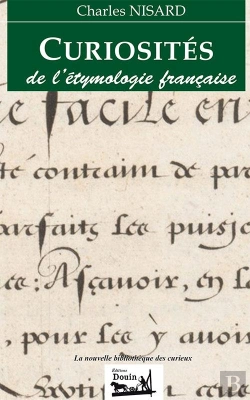 Charles NISARD
CURIOSITÉS
de l'étymologie française
facile en
té contraim de par
parfaitz les puisse
e: Asçauoir, en la
pour les y auoir
La nouvelle bibliothèque des curieux
Éditions
Douin
B